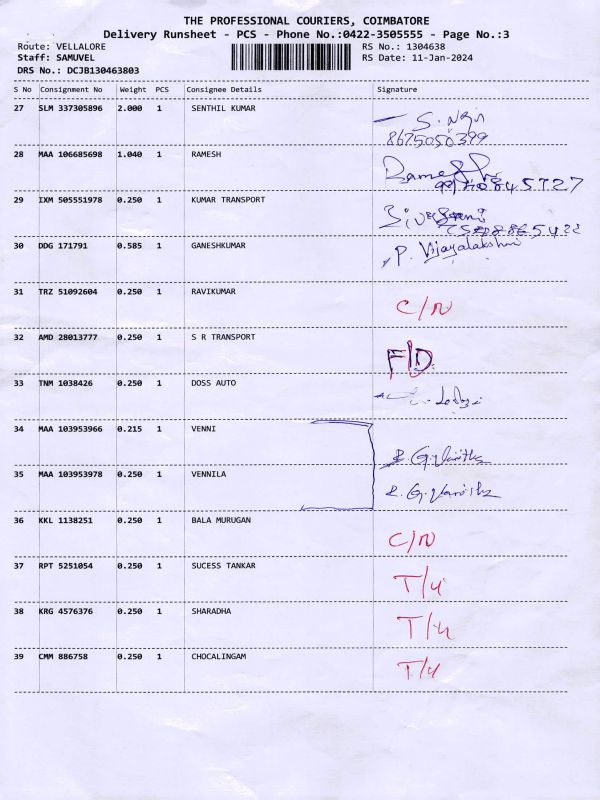 THE PROFESSIONAL COURIERS, COIMBATORE
Delivery Runsheet - PCS - Phone No.:0422-3505555 - Page No.:3
Route: VELLALORE RS No.: 1304638
Staff: SAMUVEL RS Date: 11-Jan-2024
DRS No.: DCJB130463803
S No Consignment No Weight PCS Consignee Details Signature
27 SLM 337305896 2.000 1 SENTHIL KUMAR
8675050399
28 MAA 106685698 1.040 1 RAMESH
29 IXM 505551978 0.250 1 KUMAR TRANSPORT
30 DDG 171791 0.585 1 GANESHKUMAR P. Vijayalakshmi
31 TRZ 51092604 0.250 1 RAVIKUMAR C/N
32 AMD 28013777 0.250 1 S R TRANSPORT F/D
33 TNM 1038426 0.250 1 DOSS AUTO
34 MAA 103953966 0.215 1 VENNI
35 MAA 103953978 0.250 1 VENNILA
36 KKL 1138251 0.250 1 BALA MURUGAN C/N
37 RPT 5251054 0.250 1 SUCESS TANKAR T/4
38 KRG 4576376 0.250 1 SHARADHA T/4
39 CMM 886758 0.250 1 CHOCALINGAM T/4